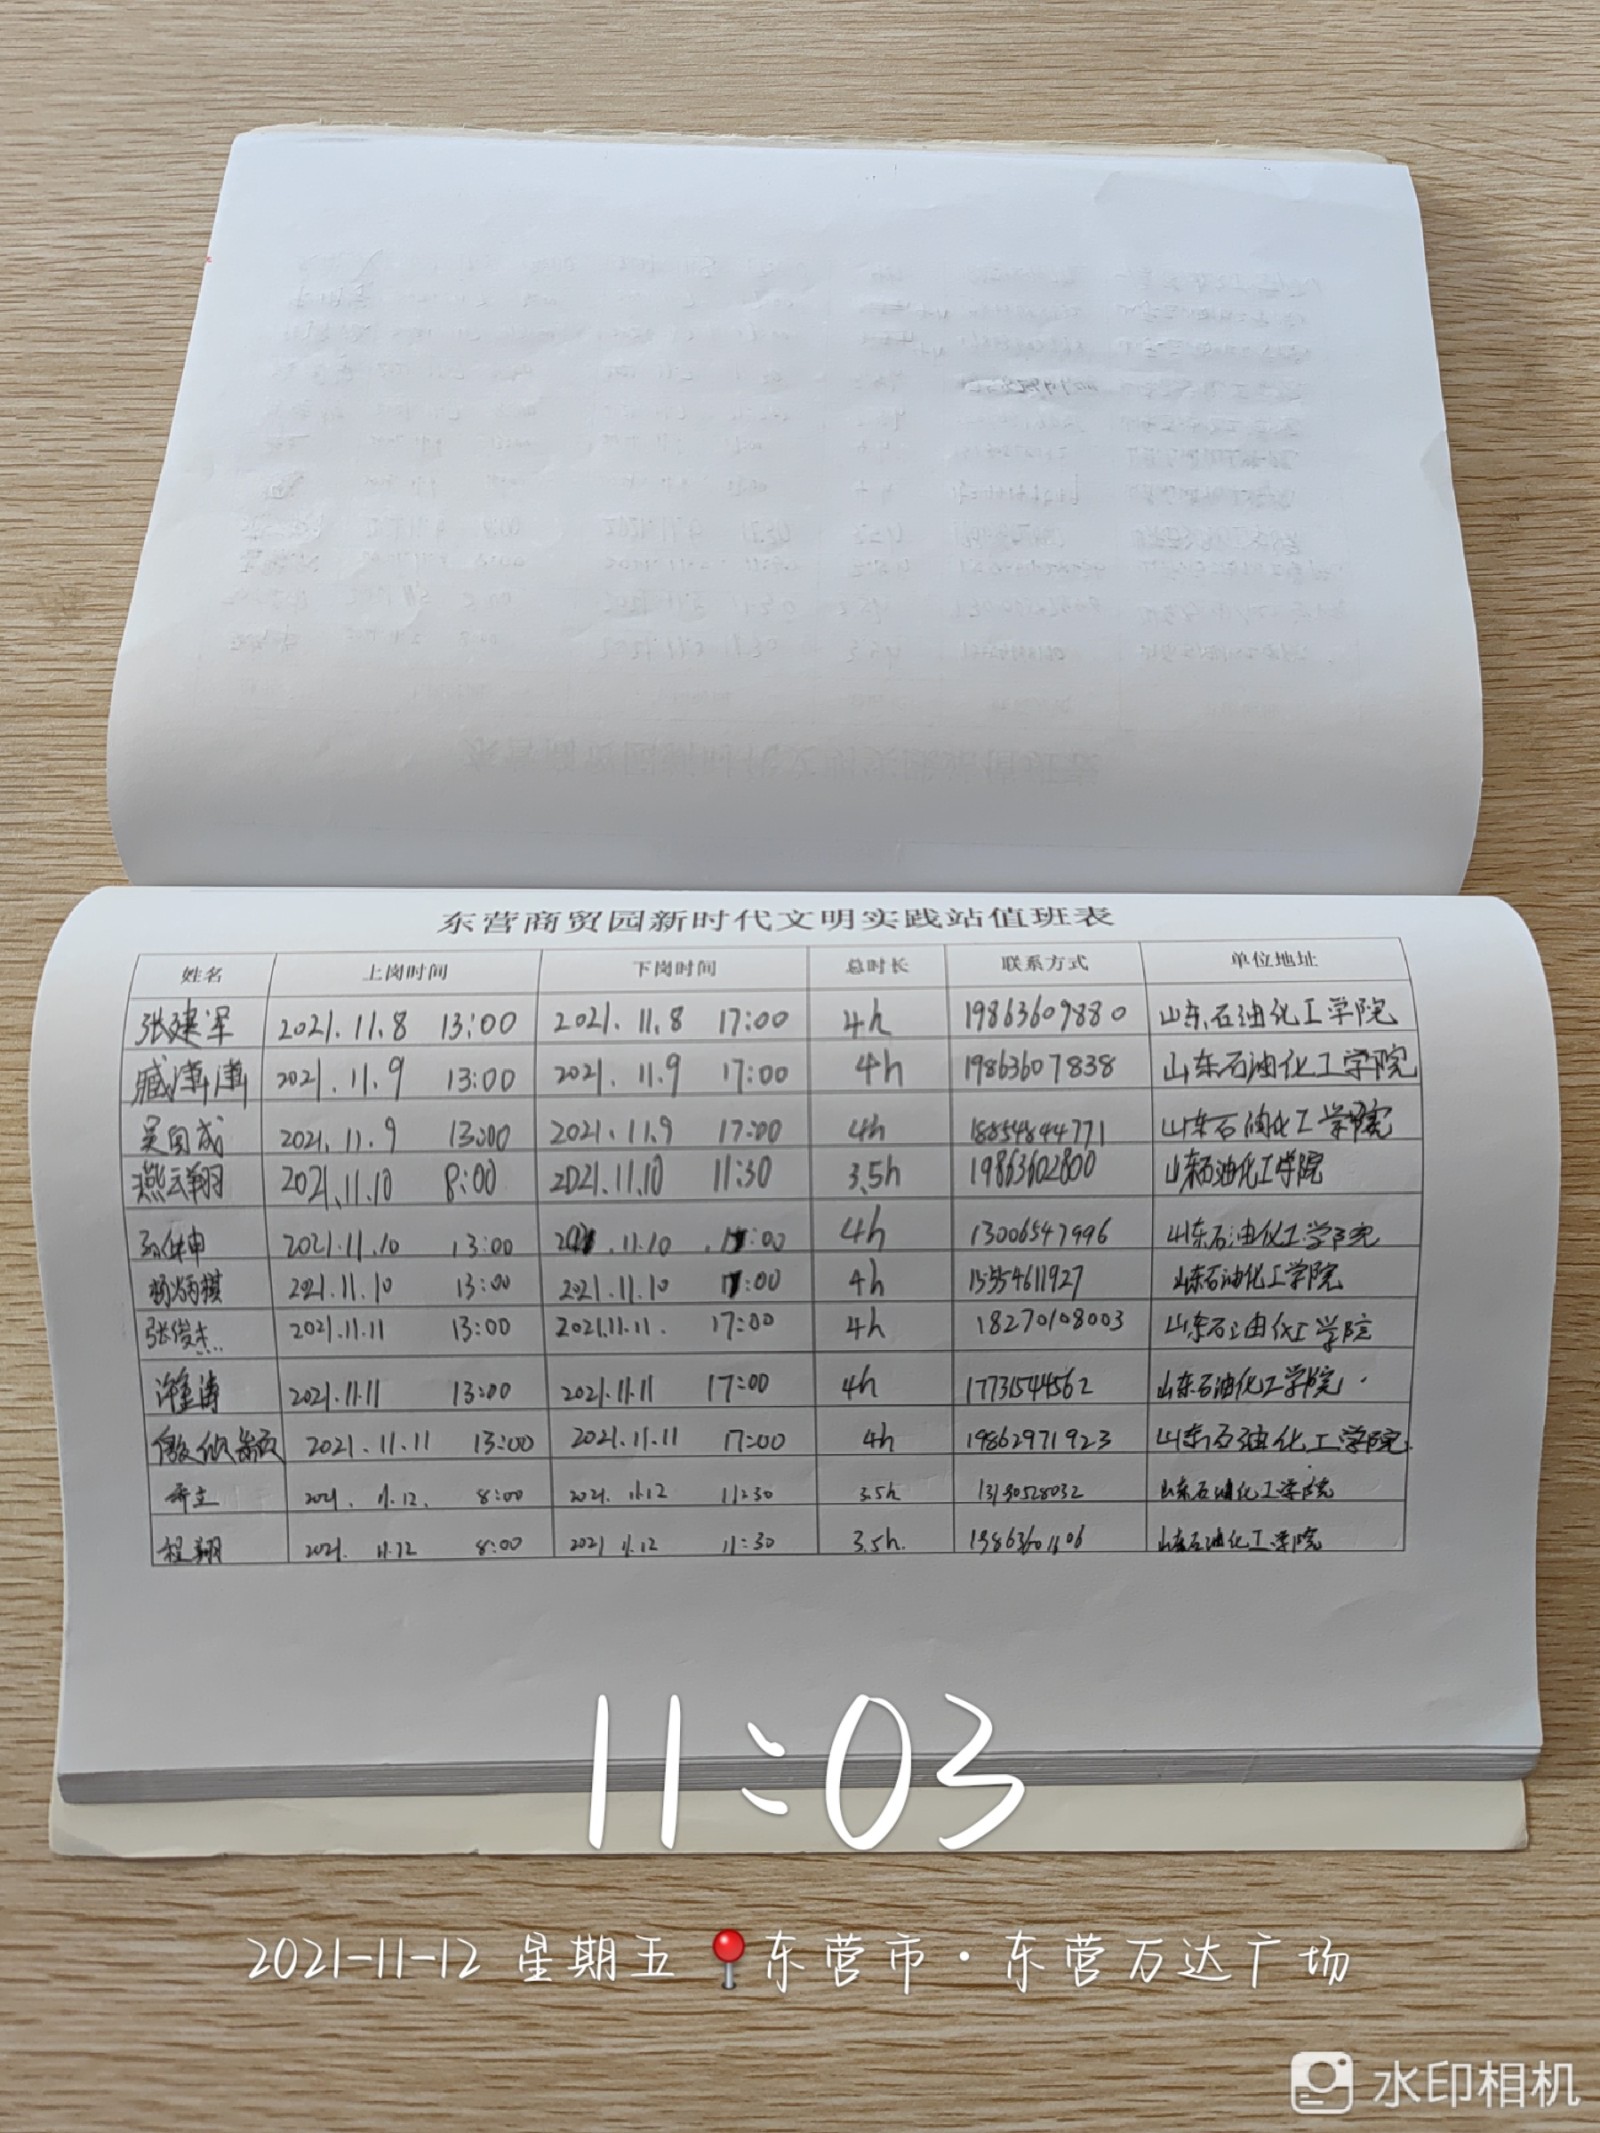 东营商贸园新时代文明实践站值班表
姓名 上岗时间 下岗时间 总时长 联系方式 单位地址
张建军 2021.11.8 13:00 2021.11.8 17:00 4h 19863609880 山东石油化工学院
臧潇潇 2021.11.9 13:00 2021.11.9 17:00 4h 19863607838 山东石油化工学院
吴国成 2021.11.9 13:00 2021.11.9 17:00 4h 18854844771 山东石油化工学院
燕云翔 2021.11.10 8:00 2021.11.10 11:30 3.5h 19863602800 山东石油化工学院
2021.11.10 13:00 2021.11.10 17:00 4h 13006547996 山东石油化工学院
杨炳棋 2021.11.10 13:00 2021.11.10 17:00 4h 15554611927 山东石油化工学院
张俊杰 2021.11.11 13:00 2021.11.11. 17:00 4h 18270108003 山东石油化工学院
2021.11.11 13:00 2021.11.11 17:00 4h 17731544562 山东石油化工学院
2021.11.11 13:00 2021.11.11 17:00 4h 19862971923 山东石油化工学院
2021.11.12. 8:00 2021.11.12 11:30 3.5h 山东石油化工学院
程翔 2021.11.12 8:00 2021.11.12 11:30 3.5h. 山东石油化工学院
11:03
2021-11-12 星期五 东营市·东营万达广场
水印相机